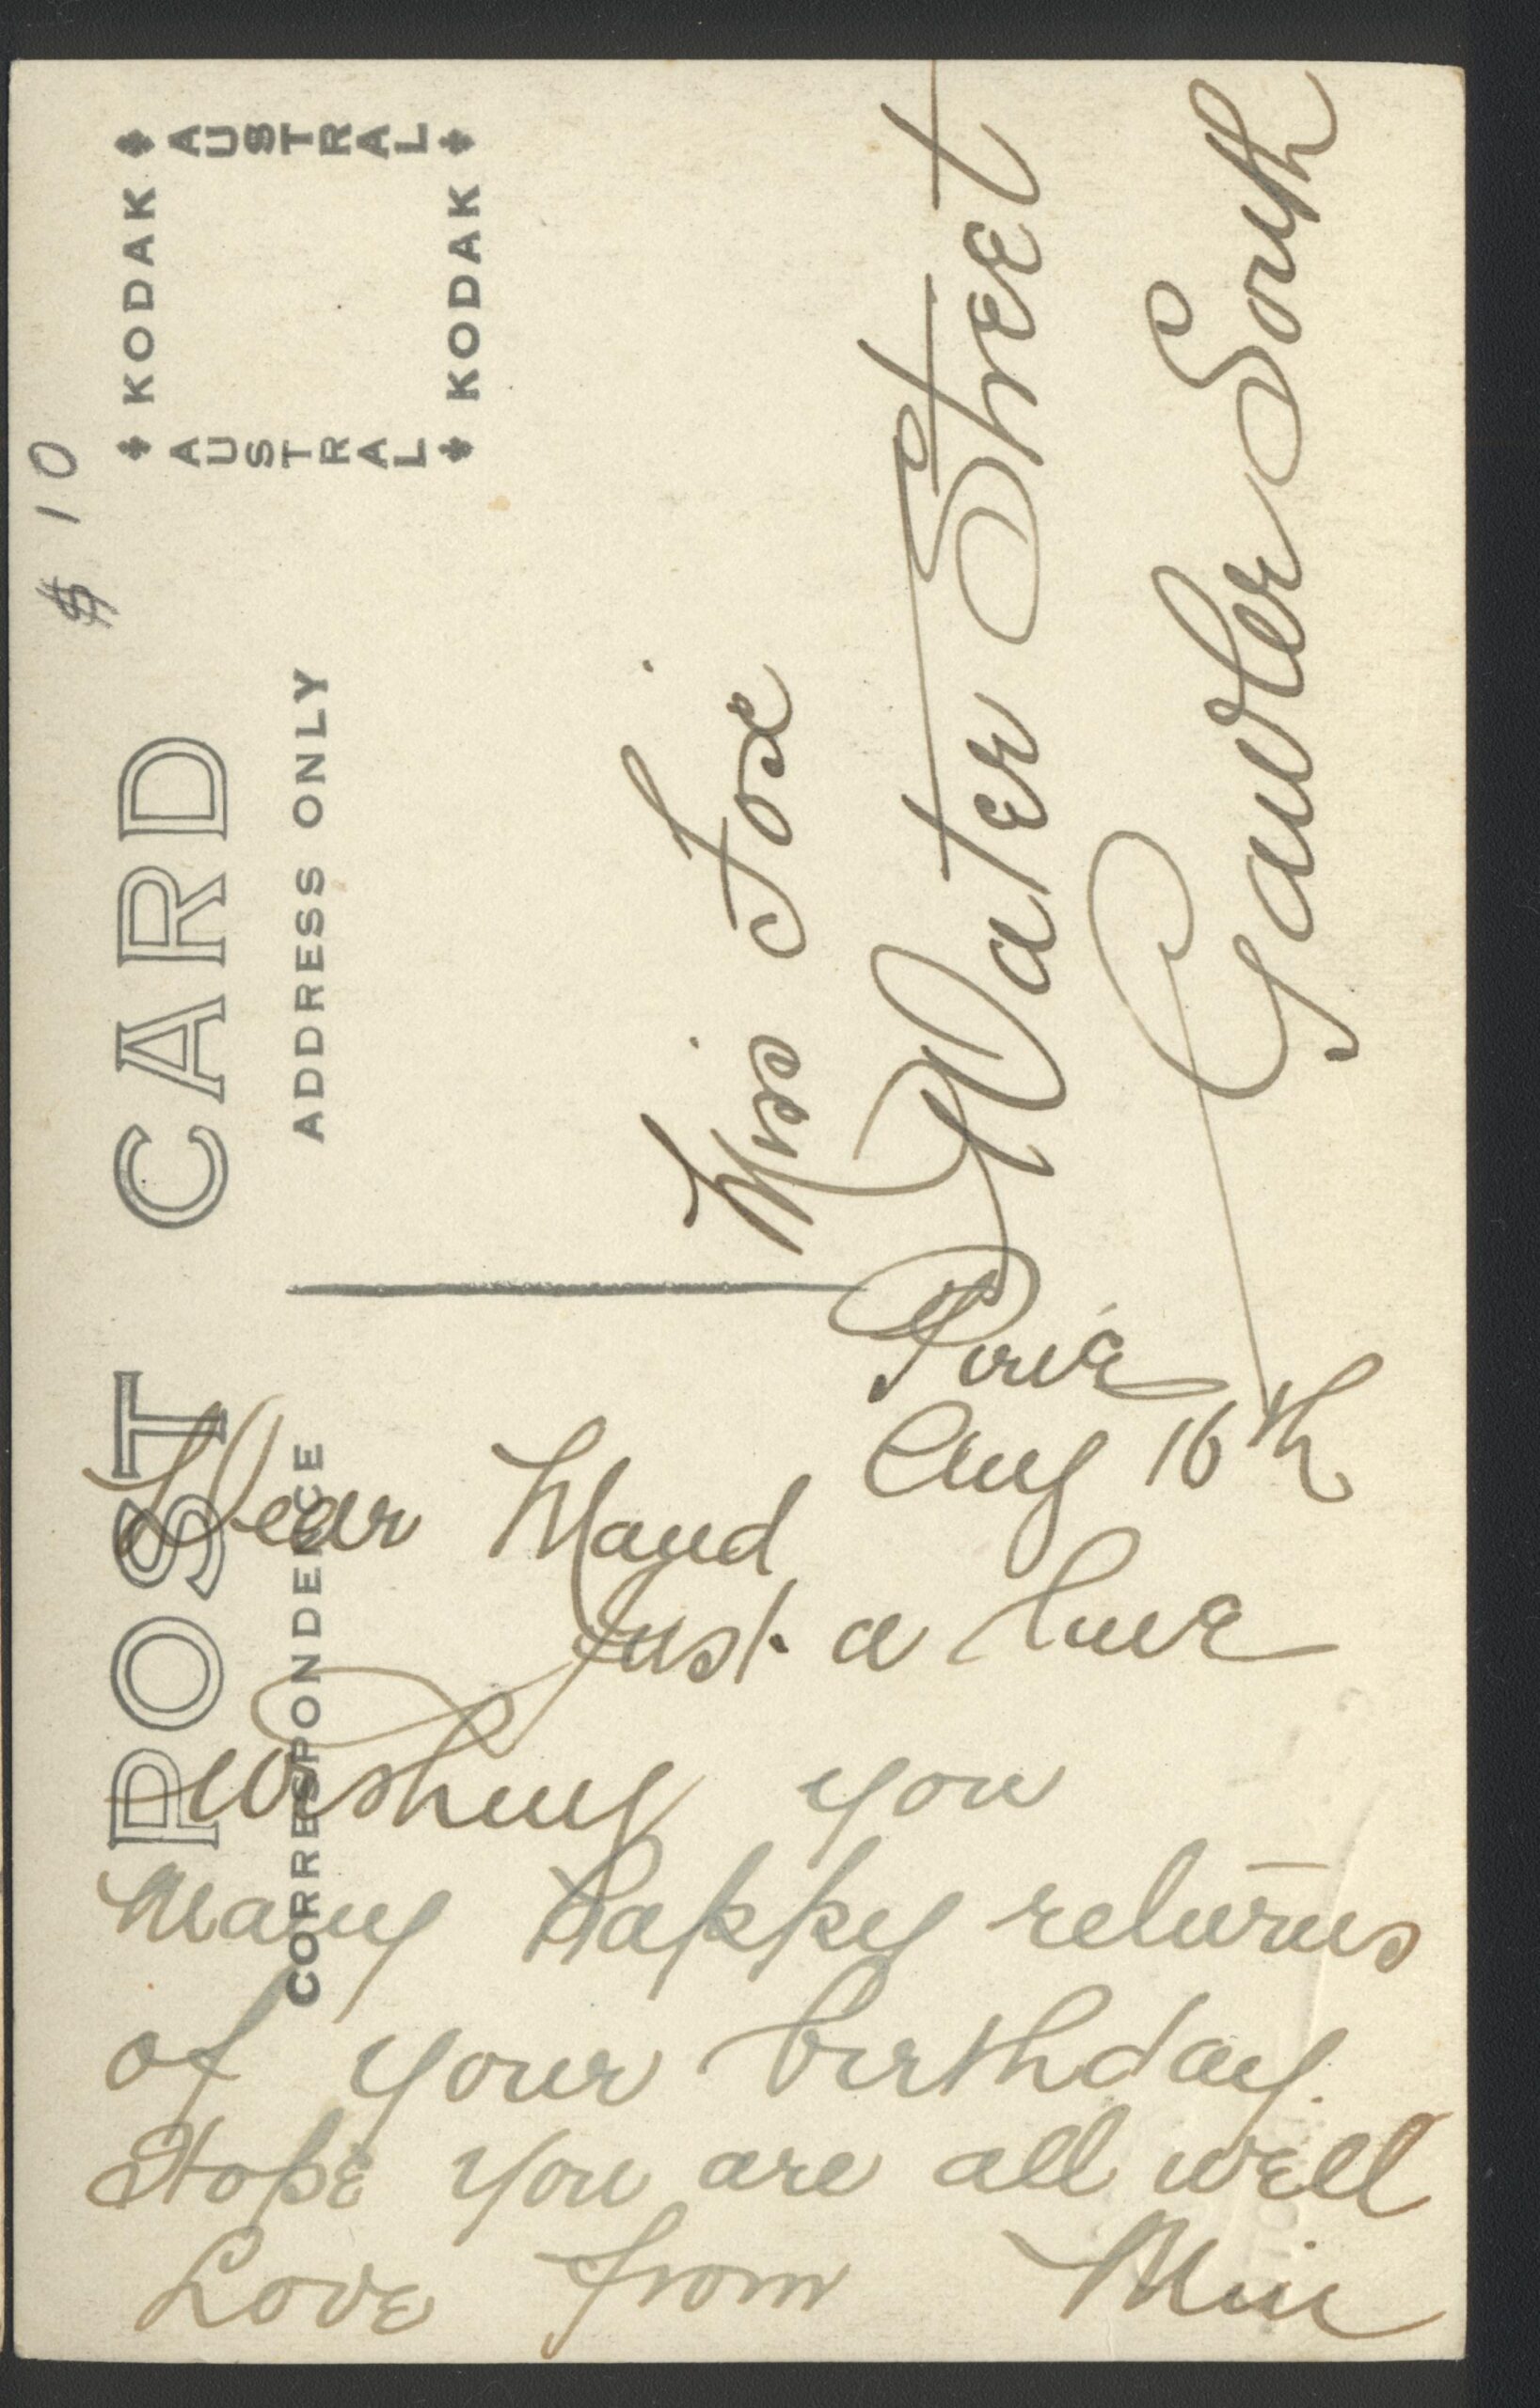 $ 10
POST CARD
CORRESPONDENCE
ADDRESS ONLY
KODAK
AUSTRAL
AUSTRAL
KODAK
Miss Fox
Water Street
Gawler South
Pirie
Aug 16th
Dear Maud
Just a line
wishing you
Many Happy returns
of your birthday.
Hope you are all well
Love from Min